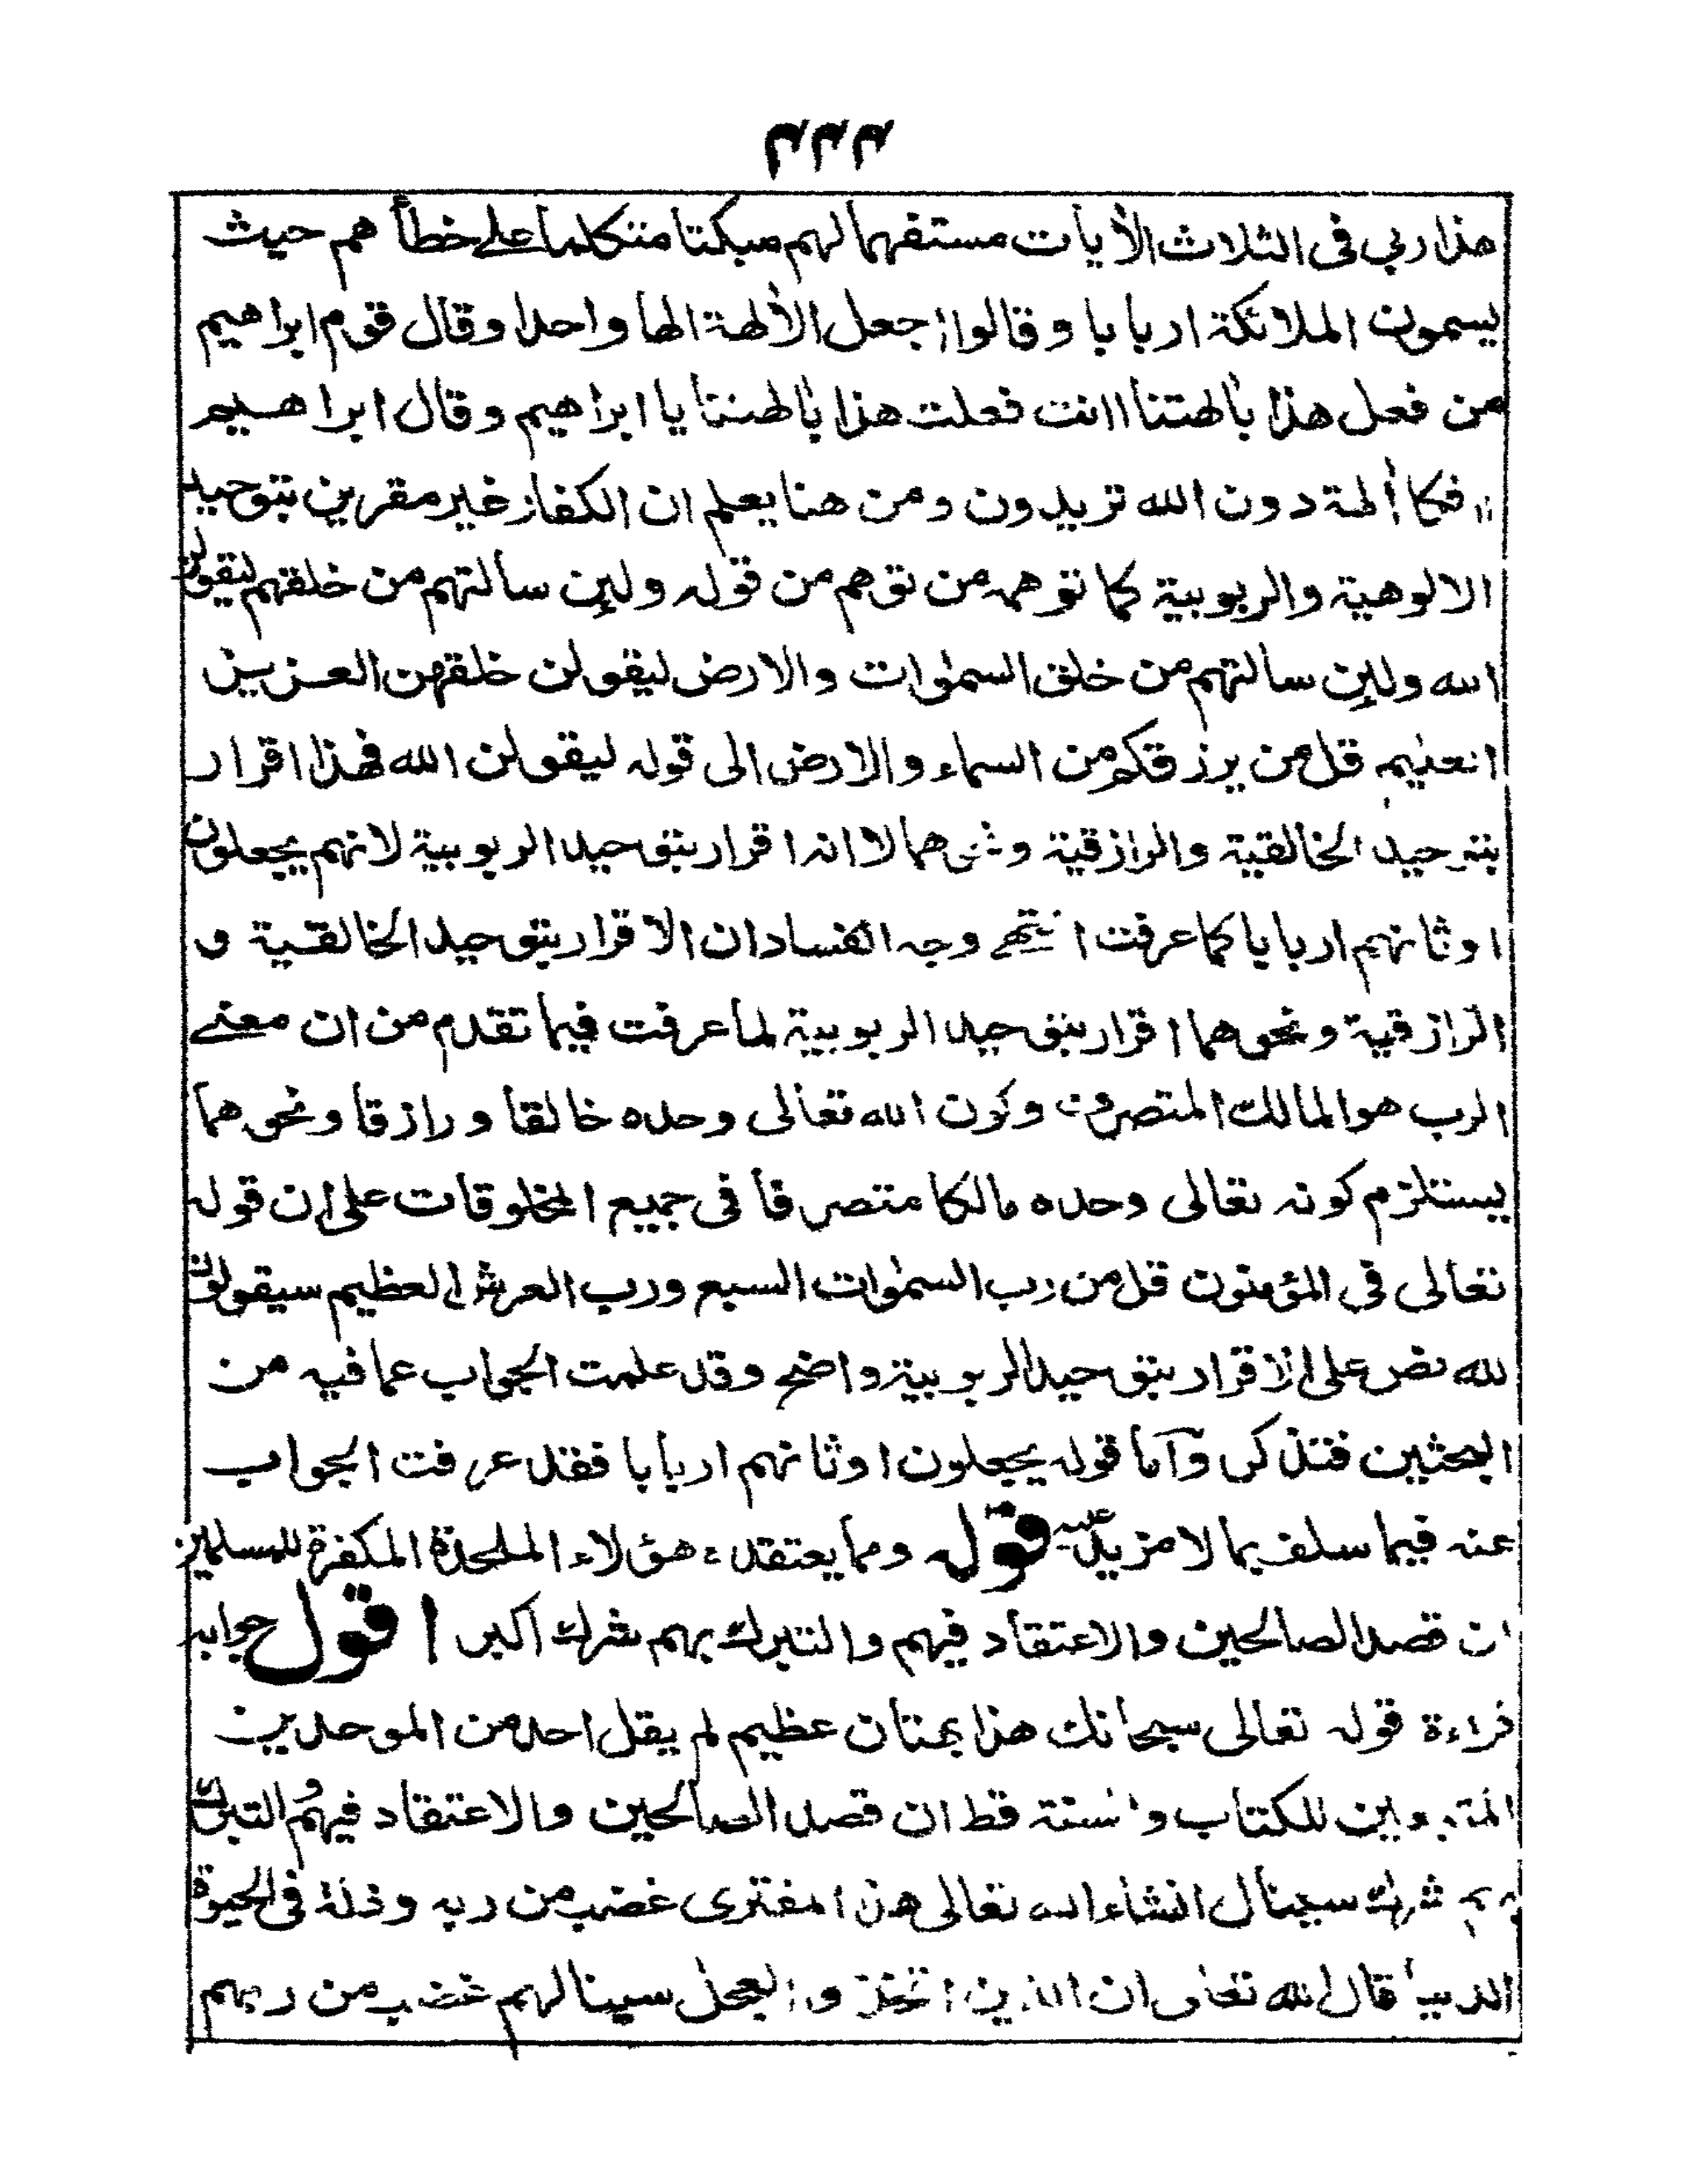 ٣٣٣
هذا ربي في الثلاث الأيات مستفهما لهم مبكتا متكلما على خطأ هم حيث
يسمون الملائكة اربابا وقالوا اجعل الألهة الها واحدا وقال قوم ابراهيم
من فعل هذا بألهتنا اانت فعلت هذا بألهتنا يا ابراهيم وقال ابراهيم
فكا ألهة دون الله تريدون ومن هنا يعلم ان الكفار غير مقرين بتوحيد
الالوهية والربوبية كما توهمه من توهم من قوله ولين سألتهم من خلقهم ليقولن
الله ولين سألتهم من خلق السموات والارض ليقولن خلقهن العزيز
العليم قل من يرزقكم من السماء والارض الى قوله ليقولن الله فهذا اقرار
بتوحيد الخالقية والرازقية ونحوهما لا انه اقرار بتوحيد الربوبية لانهم يجعلون
اوثانهم اربابا كما عرفت انتهى وجه الفساد ان الاقرار بتوحيد الخالقية و
الرازقية ونحوهما اقرار بتوحيد الربوبية لما عرفت فيما تقدم من ان معنى
الرب هو المالك المتصرف وكون الله تعالى وحده خالقا ورازقا ونحوهما
يستلزم كونه تعالى وحده مالكا متصرفا في جميع المخلوقات على ان قوله
تعالى في المؤمنون قل من رب السموات السبع ورب العرش العظيم سيقولون
لله نص على الاقرار بتوحيد الربوبية واضح وقد علمت الجواب عما فيه من
البحثين فتذكر وآما قوله يجعلون اوثانهم اربابا فقد عرفت الجواب
عنه فيما سلف بما لا مزيد عليه قوله ومما يعتقده هؤلاء الملحدة المكفرة للمسلمين
ان قصد الصالحين والاعتقاد فيهم والتبرك بهم شرك اكبر اقول جوابه
قراءة قوله تعالى سبحانك هذا بهتان عظيم لم يقل احد من الموحدين
المتبعين للكتاب والسنة قط ان قصد الصالحين والاعتقاد فيهم والتبرك
بهم شرك سينال انشاء الله تعالى هذا المفترى غضب من ربه وذلة في الحيوة
الدنيا قال لله تعالى ان الذين اتخذوا العجل سينالهم غضب من ربهم